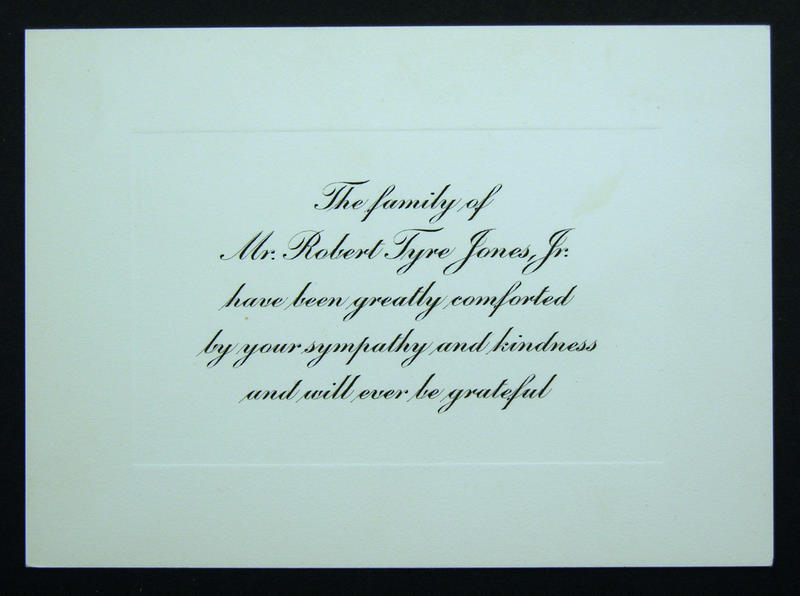 The family of
Mr. Robert Tyre Jones, Jr.
have been greatly comforted
by your sympathy and kindness
and will ever be grateful